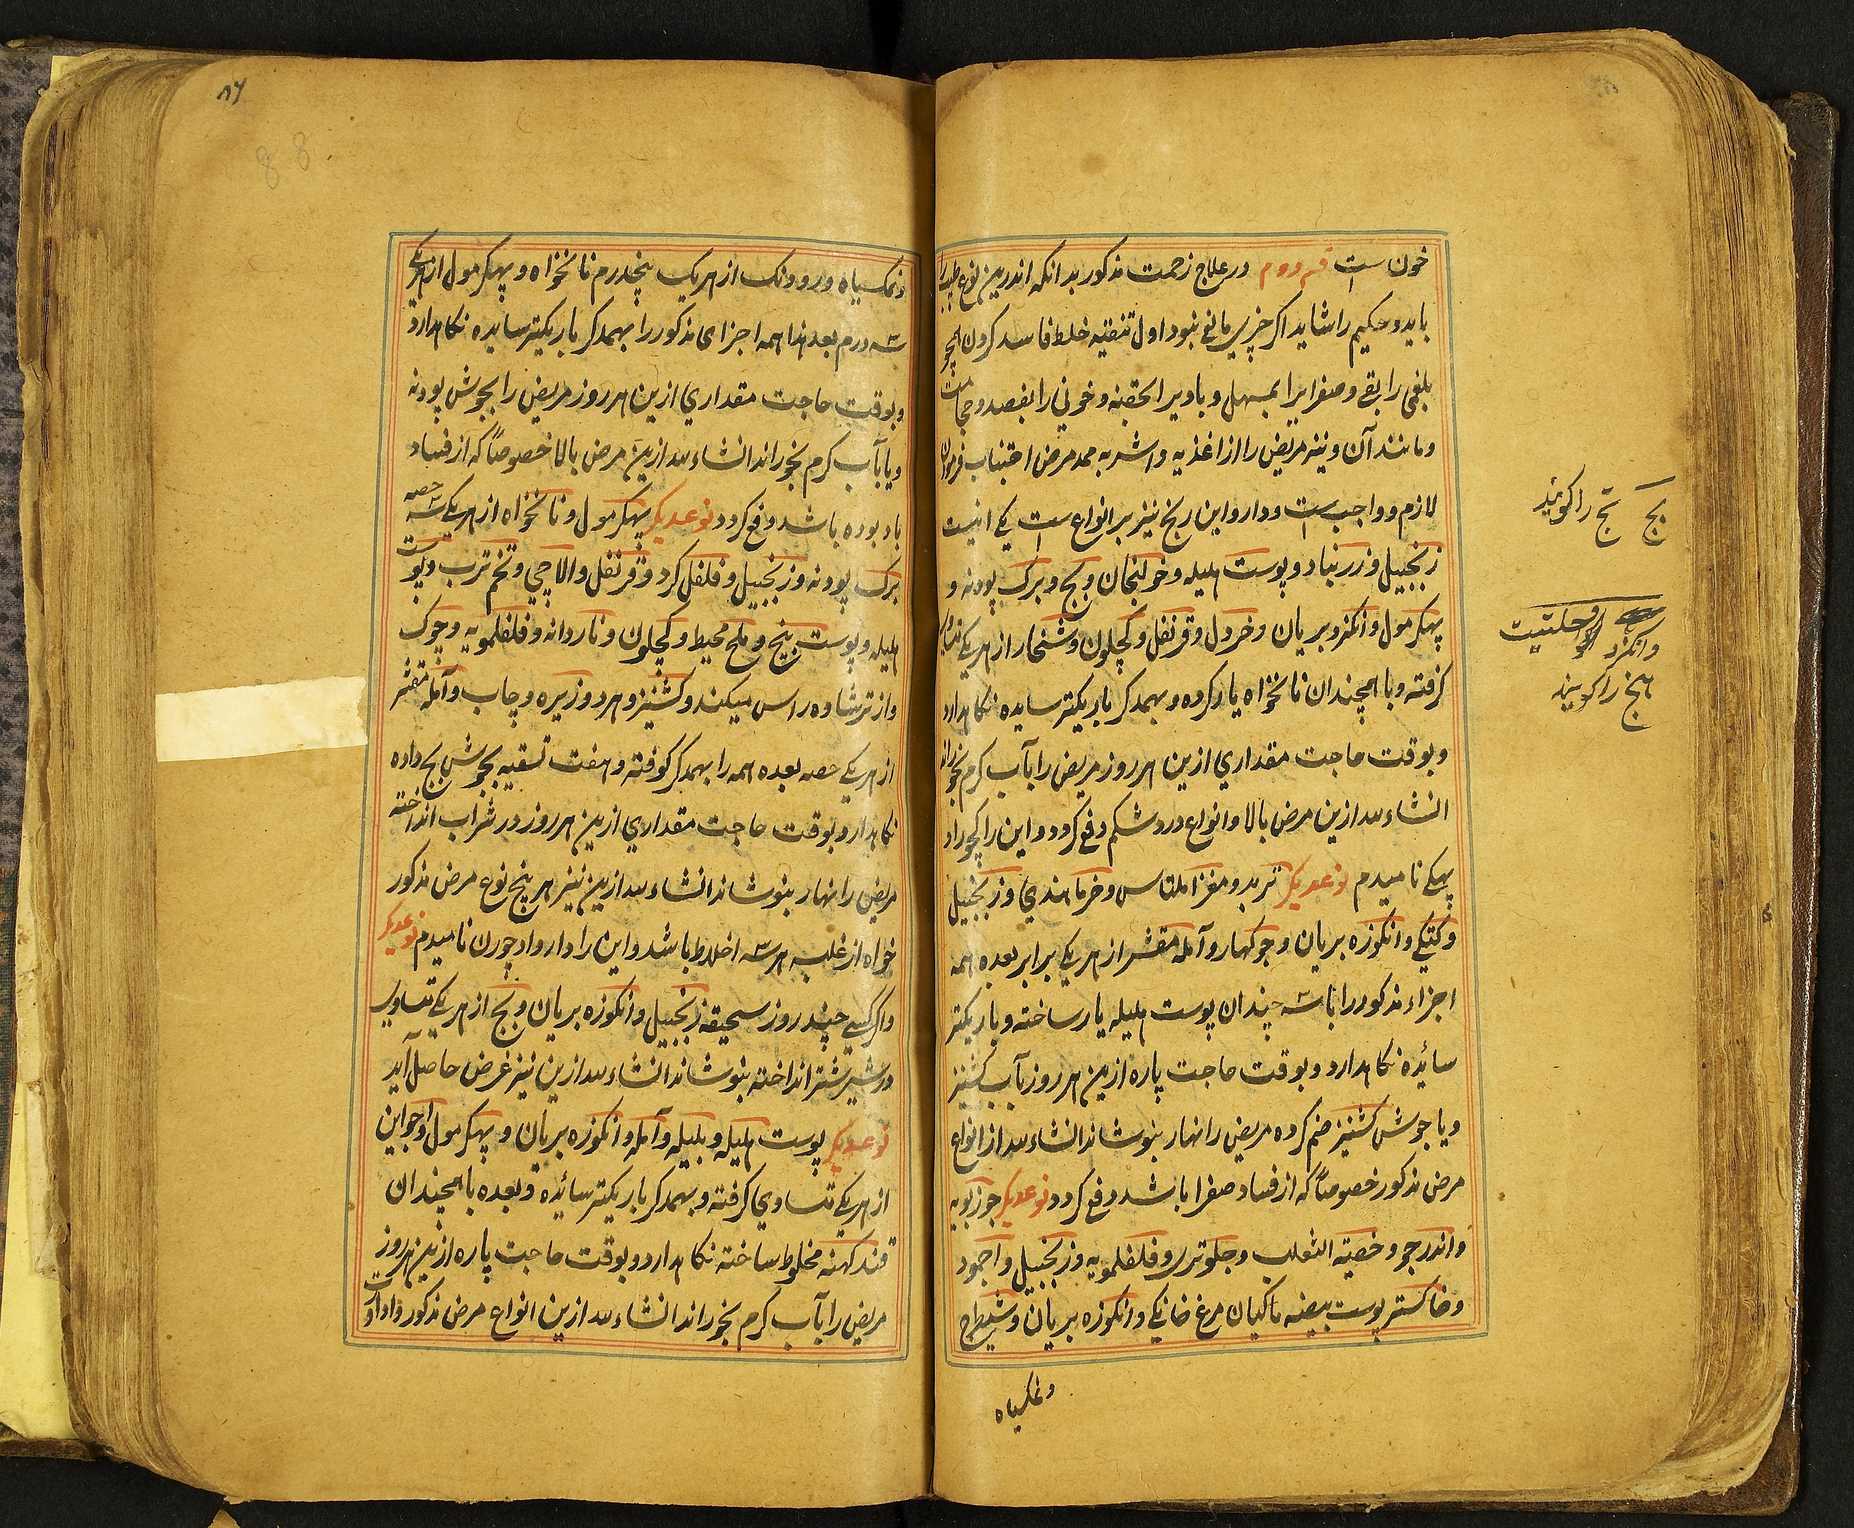 خون ست قسم دوم در علاج زحمت مذکور بدانکه اندرین نوع طبیب را
باید و حکیم را شاید اگر چیزی مانع نبود اول تنقیه خلط فاسد کردن همچو
بلغمی را بقے و صفرایرا بمسهل و بادیرا بحقنه و خونی را بفصد و حجامت
و مانند آن و نیز مریض را از اغذیه و اشربه ممد مرض اجتناب فرمودن
لازم و واجب ست و دارو این رنج نیز بر انواع ست یکے اینست
زنجبیل و زرنباد و پوست هلیله و خولنجان و بج و برگ پودنه و
پهکرمول و انگزه بریان و خردل و قرنفل و کچلون و شنخار از هریکے تساوی
گرفته و با همچندان نانخواه یار کرده و بهمدگر باریکتر سایده نگاهدارد
و بوقت حاجت مقداری ازین هر روز مریض را بآب گرم بخوراند
انشاءالله ازین مرض بالا و انواع درد شکم دفع گردد و این را کچوراد
پهکے نامیدم نوعدیگر تربد و مغز املتاس و خرما هندی و زنجبیل
و کتکے و انکوزه بریان و جوکهار و آمله مقشر از هریکے برابر بعده همه
اجزاء مذکور را با سه چندان پوست هلیله یار ساخته و باریکتر
سائیده نگاهدارد و بوقت حاجت پاره ازین هر روز بآب کشنیز
و یا جوش کشنیز ضم کرده مریض را نهار بنوشاند انشاءالله از انواع
مرض مذکور خصوصاً که از فساد صفرا باشد دفع گردد نوعدیگر جوزبویه
و اندرجو و خصیة الثعلب و جلوتری و فلفلمویه و زنجبیل و اجمود
و خاکستر پوست بیضه ماکیان مرغ خانگے و انکوزه بریان و شیطرج
و نمکسیاه
بج بچ را گویند
وانگزد حلتیت
هنج را گویند
۸۷
88
و نمکسیاه و رودنمک از هریک پنجدرم نانخواه و پهکرمول از هریکے
سه درم بعد هذا همه اجزای مذکور را بهمدگر باریکتر سایده نگاهدارد
و بوقت حاجت مقداری ازین هر روز مریض را بجوش پودنه
و یا بآب گرم بخوراند انشاءالله ازین مرض بالا خصوصاً که از فساد
باد بوده باشد دفع گردد نوعدیگر پهکرمول و نانخواه از هریکے سه حصه
برگ پودنه و زنجبیل و فلفل گرد و قرنفل و الاچی و تخم ترب و پوست
هلیله و پوست بیخ و ملح محیط و کچلون و ناردانه و فلفلمویه و چوک
و از ترشاوه راس میکند و کشنیز و هر دو زیره و چاب و آمله مقشر
از هریکے حصه بعده همه را بهمدگر کوفته و هفت تسقیه بجوش بج داده
نگاهدارد و بوقت حاجت مقداری ازین هر روز در شراب انداخته
مریض را نهار بنوشاند انشاءالله ازین نیز هر پنج نوع مرض مذکور
خواه از غلبه هر سه اخلاط باشد و این را داروادچورن نامیدم نوعدیگر
و اگر کسے چند روز سحیقه زنجبیل و انکوزه بریان و بج از هریکے تساوی
در شیر شتر انداخته بنوشاند انشاءالله ازین نیز غرض حاصل آید
نوعدیگر پوست هلیله و بلیله و آمله و انکوزه بریان و پهکرمول و اجواین
از هریکے تساوی گرفته و بهمدگر باریکتر سائیده و بعده با همچندان
قند کهنه مخلوط ساخته نگاهدارد و بوقت حاجت پاره ازین هر روز
مریض را بآب گرم بخوراند انشاءالله ازین انواع مرض مذکور